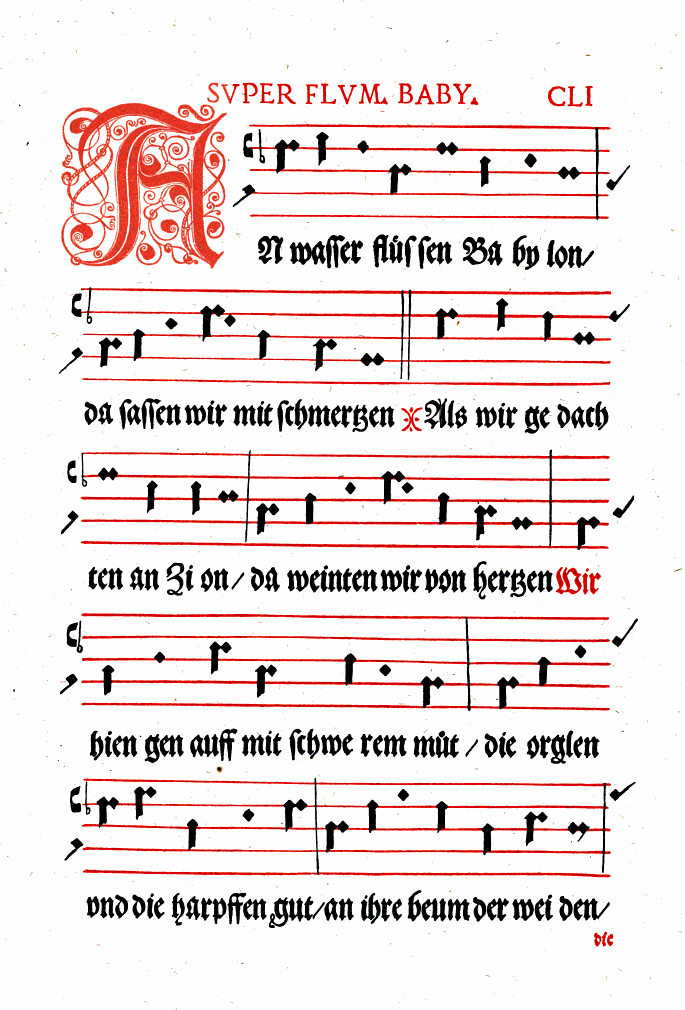 SVPER FLVM. BABY. CLI
AN wasser flüssen Ba by lon/
da sassen wir mit schmertzen Als wir ge dach
ten an Zi on/ da weinten wir von hertzen Wir
hien gen auff mit schwe rem můt / die orglen
vnd die harpffen gut/ an ihre beum der wei den/
die